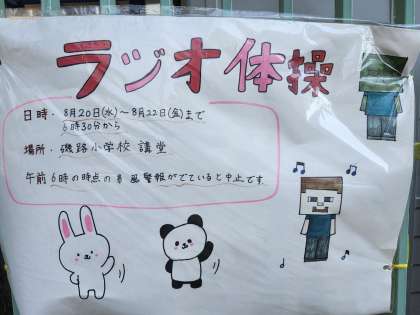 ラジオ体操
日時・8月20日(水)～8月22日(金)まで
6時30分から
場所・磯路小学校 講堂
午前6時の時点の暴風警報がでていると中止です.